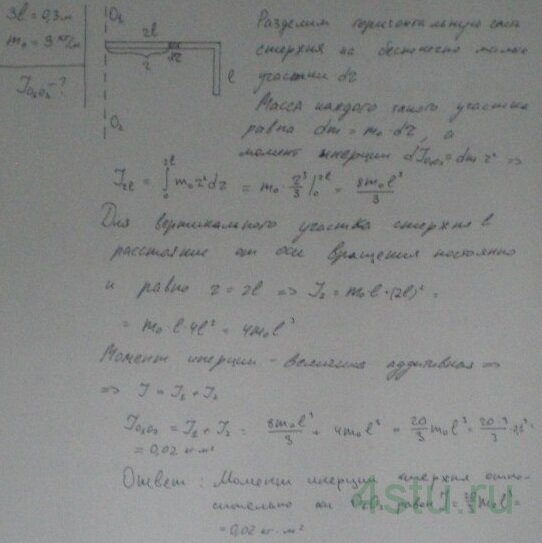 3l = 0,3 м
m₀ = 3 кг/м
J₀₁₀₂ - ?
O₁
2l
r
dr
l
O₂
Разделим горизонтальную часть
стержня на бесконечно малые
участки dr
Масса каждого такого участка
равна dm = m₀ · dr, а
момент инерции dJ₀₁₀₂ = dm r² =>
J₂ₗ = ∫₀²ˡ m₀ r² dr = m₀ · r³/3 |₀²ˡ = 8m₀l³/3
Для вертикального участка стержня l
расстояние от оси вращения постоянно
и равно r = 2l => J₂ = m₀l · (2l)² =
= m₀ · l · 4l² = 4m₀l³
Момент инерции - величина аддитивная =>
=> J = J₁ + J₂
J₀₁₀₂ = J₁ + J₂ = 8m₀l³/3 + 4m₀l³ = 20/3 m₀l³ = 20·3/3 · 0,1³ =
= 0,02 кг·м²
Ответ: Момент инерции стержня отно-
сительно оси O₁O₂ равен J = 20/3 m₀l³ =
= 0,02 кг·м²
4stu.ru